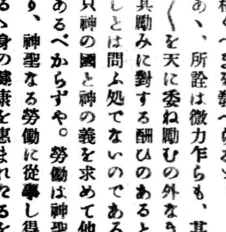 あゝ、所詮は微力乍らも、其
くを天に委ね勵むの外なき
其勵みに對する酬ひのあると
しとは問ふ処でないのである
只神の國と神の義を求めて他
あるべからずや。勞働は神聖
す、神聖なる勞働に從事し得
るゝ身の健康を惠まれたるを